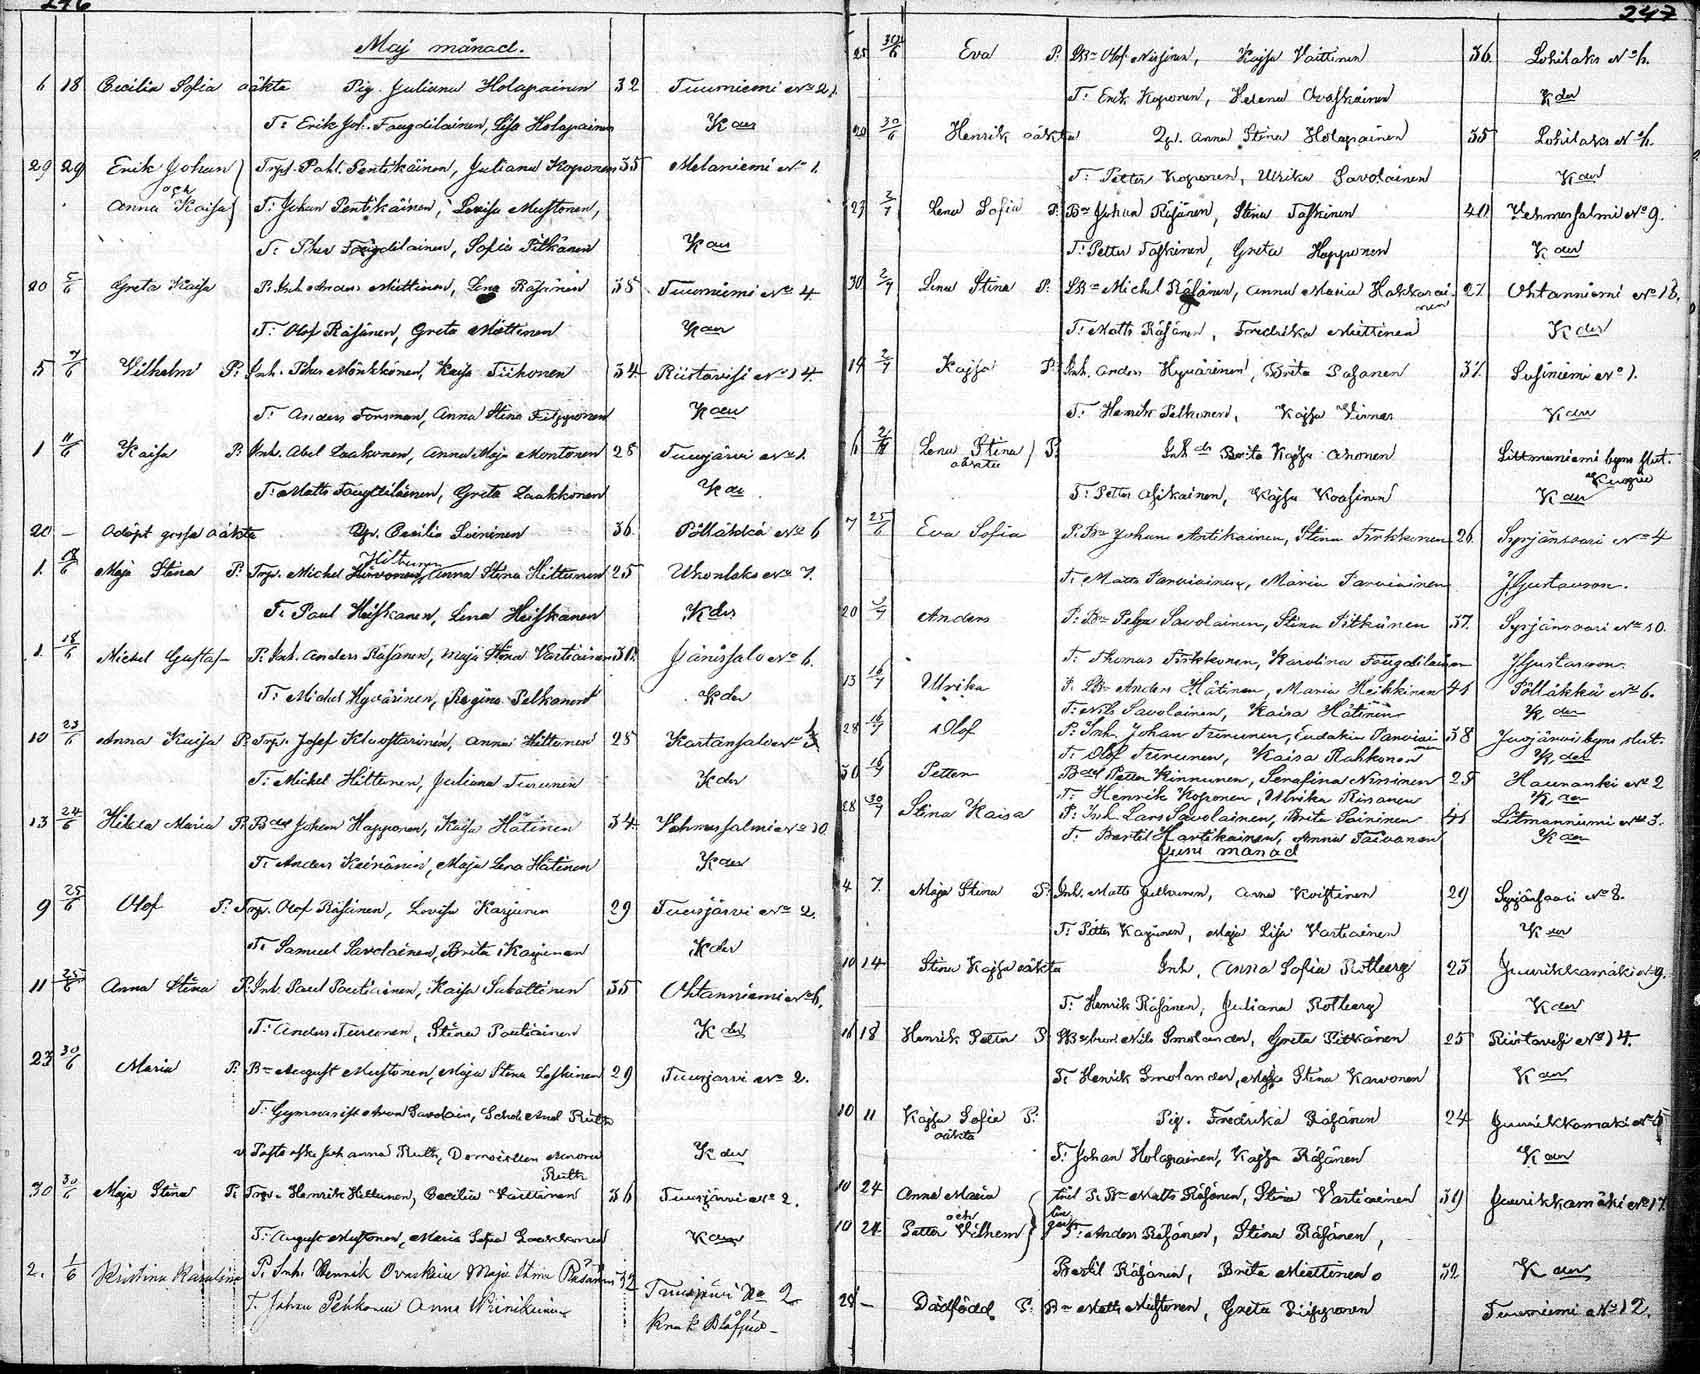 246
Maj månad.
6 18 Cecilia Sofia oäkta Pig. Juliana Holapainen 32 Tuurniemi No 21.
T: Erik Joh. Faugdilainen, Lisa Holapainen Kder
29 29 Erik Johan Trp. Pahl. Pentikäinen, Juliana Koponen 35 Melaniemi No 1.
och
Anna Kaisa T: Johan Pentikäinen, Lovisa Mustonen,
T: Peher Faugdilainen, Sofia Pitkänen Kder
20 5/6 Greta Kaisa P: Inh. Anders Miettinen, Lena Räsänen 38 Tuurniemi No 4
T: Olof Räsänen, Greta Miettinen Kder
5 7/6 Vilhelm P: Inh. Peher Mönkkönen, Kaisa Tiihonen 34 Riistavesi No 14.
T: Anders Forsman, Anna Stina Filpponen Kder
1 11/6 Kaisa P: Inh. Abel Laakonen, Anna Maja Montonen 28 Tuusjärvi No 1.
T: Matts Faugdilainen, Greta Laakkonen Kder
20 — Odöpt gosse oäkta Cecilia Soininen 36 Pölläkkä No 6
Hiltunen
1. 18/6 Maja Stina P: Trp. Michel Hirvonen, Anna Stina Hiltunen 25 Ukonlaks No 7.
T: Paul Heiskanen, Lena Heiskanen Kder
1. 18/6 Michel Gustaf P: Inh. Anders Räsänen, Maja Stina Vartiainen 31 Jänissalo No 6.
T: Michel Hyvärinen, Regina Pelkanen Kder
10 23/6 Anna Kaisa P: Trp. Josef Kloostarinen, Anna Hiltunen 28 Kartansalo No
T: Michel Hiltunen, Juliana Turunen Kder
13 24/6 Hilda Maria P: Bder Johan Happonen, Kaisa Hätinen 34 Vehmersalmi No 10
T: Anders Keinänen, Maja Lena Hätinen Kder
9 25/6 Olof P: Trp. Olof Räsänen, Lovisa Karjunen 29 Tuusjärvi No 2.
T: Samuel Savolainen, Brita Karjunen Kder
11 25/6 Anna Stina P: Inh. Paul Pautiainen, Kaisa Sutattinen 35 Ohtanniemi No 6.
T: Anders Turunen, Stina Pautiainen Kder
23 30/6 Maria P: Bn August Mustonen, Maja Stina Leskinen 29 Tuusjärvi No 2.
T: Gymnasist Aron Savolain, Ruth
Johanna Ruth, Ruth Kder
30 30/6 Maja Stina P: Trp. Henrik Hiltunen, Cecilia Väittinen 36 Tuusjärvi No 2.
T: August Mustonen, Maria Sofia Laakkonen Kder
2. 1/6 Kristina Karolina P. Inh. Henrik Ovaskain Maja Stina Räsänen 32 Tuusjärvi No 2
T. Johan Pekkonen Anna Kra k Blåfjeld
247
25 30/6 Eva P: LBn Olof Nissinen, Kajsa Väittinen 36. Lohilaks No 6.
T: Erik Koponen, Helena Ovaskainen Kder
20 30/6 Henrik oäkta Anna Stina Holapainen 35 Lohilaks No 6.
T: Petter Koponen, Ulrika Savolainen Kder
23 2/7 Lena Sofia P: Bn Johan Räsänen, Stina Taskinen 40 Vehmersalmi No 9.
T: Petter Taskinen, Greta Happonen Kder
30 2/7 Lena Stina P: LBn Michel Räsänen, Anna Maria Hakkarainen 27 Ohtanniemi No 13.
T: Matts Räsänen, Fredrika Miettinen Kder
19 2/7 Kajsa P: Inh. Anders Hyvärinen, Brita Pasanen 37. Susiniemi No 1.
T: Henrik Pelkonen, Kajsa Virman Kder
6 Lena Stina P. Inh dr Brita Kajsa Ahonen Littmaniemi byns slut.
oäkta Kuopio
T: Petter Asikainen, Kajsa Koasinen Kder
7 25/6 Eva Sofia P: Bn Johan Antikainen, Stina Pirkkonen 26. Syrjänsaari No 4
T: Matts Parviainen, Maria Parviainen JGustavson.
20 3/7 Anders P: Bn Pehr Savolainen, Stina Pitkänen 37. Syrjänsaari No 10.
T: Thomas Pirkkonen, Karolina Faugdilainen JGustavson.
13 16/7 Ulrika P: LBn Anders Hätinen, Maria Heikkinen 41 Pölläkkä No 6.
T: Nils Savolainen, Kaisa Hätinen Kder
28 16/7 Olof P: Inh. Johan Turunen, Eudakia Parviainen 38 Juojärvi byns slut.
T: Olof Turunen, Kaisa Rahkonen Kder
30 16/7 Petter Bder Petter Kinnunen, Serafina Nissinen 25 Haunanki No 2
T: Henrik Koponen, Ulrika Rinanen Kder
28 30/7 Stina Kaisa P: Inh. Lars Savolainen, Brita Soininen 41 Litmanniemi No 3.
T: Bertil Hartikainen, Anna Taivanen Kder
Juni månad
4 7. Maja Stina P: Inh. Matts Julkunen, Anna Koistinen 29 Syrjänsaari No 8.
T: Petter Karjunen, Maja Lisa Vartiainen Kder
10 14 Stina Kajsa oäkta Inh. Anna Sofia Rotberg 23 Juurikkamäki No 9.
T: Henrik Räsänen, Juliana Rotberg Kder
16 18 Henrik Petter P: Nils Smolander, Greta Pitkänen 25 Riistavesi No 14.
T: Henrik Smolander, Maja Stina Karvonen Kder
10 11 Kajsa Sofia P: Pig. Fredrika Räsänen 24 Juurikkamäki No 5
oäkta
T: Johan Holapainen, Kajsa Räsänen Kder
10 24 Anna Maria P: Bn Matts Räsänen, Stina Vartiainen 39 Juurikkamäki No 17
och
10 24 Petter Vilhem T: Anders Räsänen, Stina Räsänen,
Bertil Räsänen, Brita Miettinen 32 Kder
28 — Dödfödd P: Bn Matts Mustonen, Greta Piipponen Tuurniemi No 12.